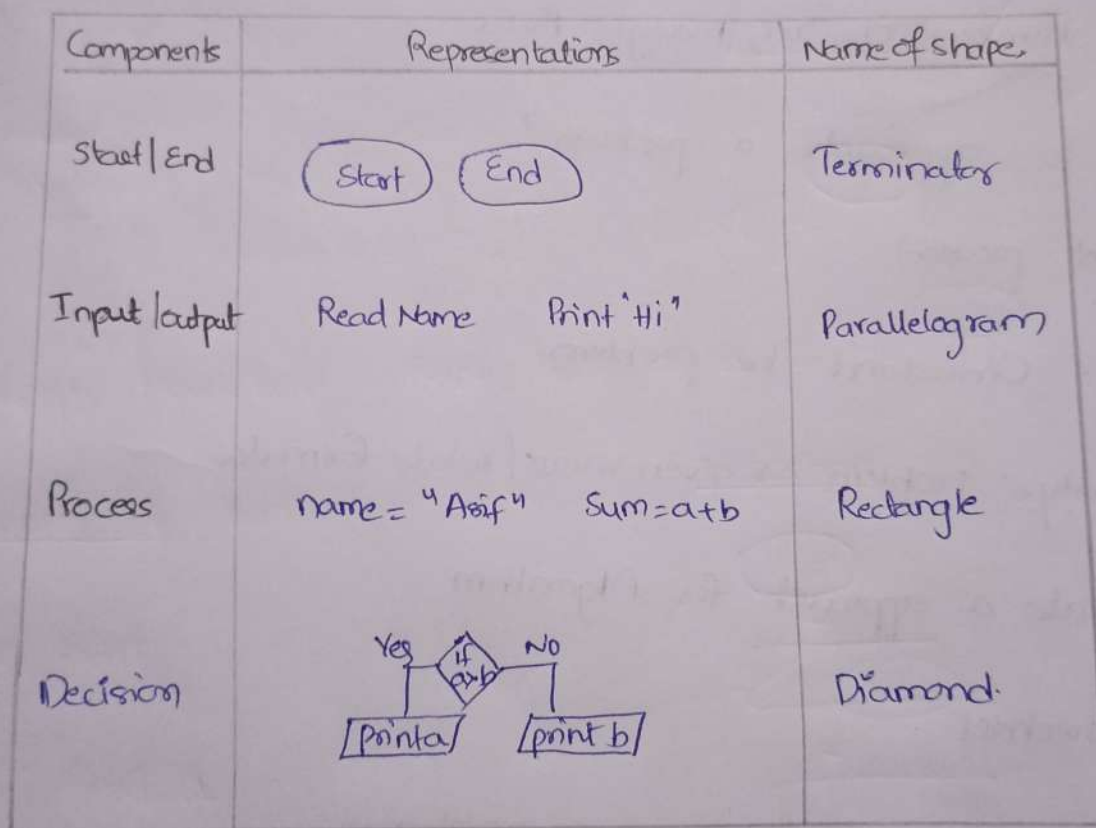 Components Representations Name of shape
Start/End Start End Terminator
Input/output Read Name Print "Hi" Parallelogram
Process name = "Asif" Sum=a+b Rectangle
Yes If a>b No
Decision Diamond.
Print a print b